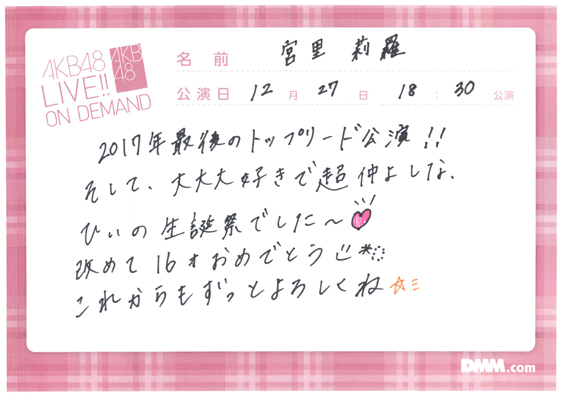 AKB48
LIVE!!
ON DEMAND
AKB
48
名前 宮里 莉羅
公演日 12月27日 18:30公演
2017年最後のトップリード公演!!
そして、大大大好きで超仲よしな、
ひぃの生誕祭でした〜
改めて16才おめでとう
これからもずっとよろしくね
DMM.com